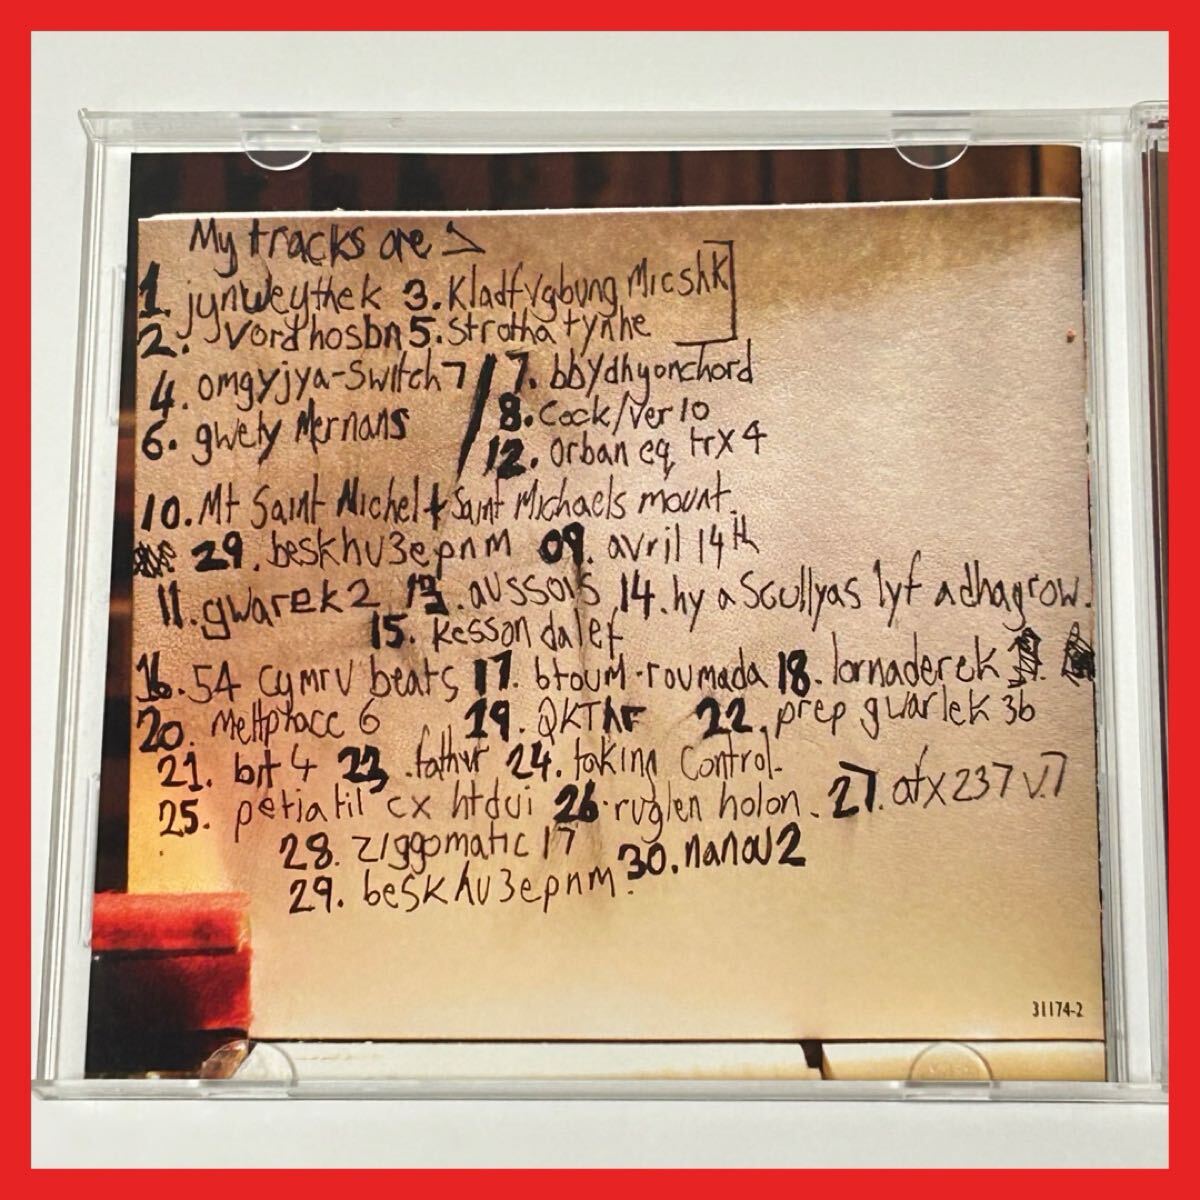 My tracks are >
1. jynweythek 3. Kladfvgbung Micshk
2. Vordhosbn 5. Strotha tynhe
4. omgyjya-Switch7 / 7. bbydhyonchord
6. gwely Mernans 8. Cock/Ver10
12. orban eq trx 4
10. Mt Saint Michel + Saint Michaels mount.
29. beskhu3epnm 09. avril 14th
11. gwarek2 13. aussois 14. hy a Scullyas lyf adhagrow.
15. Kesson dalef
16. 54 cymru beats 17. btoum-roumada 18. lornaderek
20. meltphace 6 19. QKThr 22. prep gwarlek 3b
21. bit 4 23. father 24. taking control.
25. petiatil cx htdui 26. ruglen holon. 27. afx 237 v.7
28. ziggomatic 17 30. nanou2
29. beskhu3epnm.
31174-2